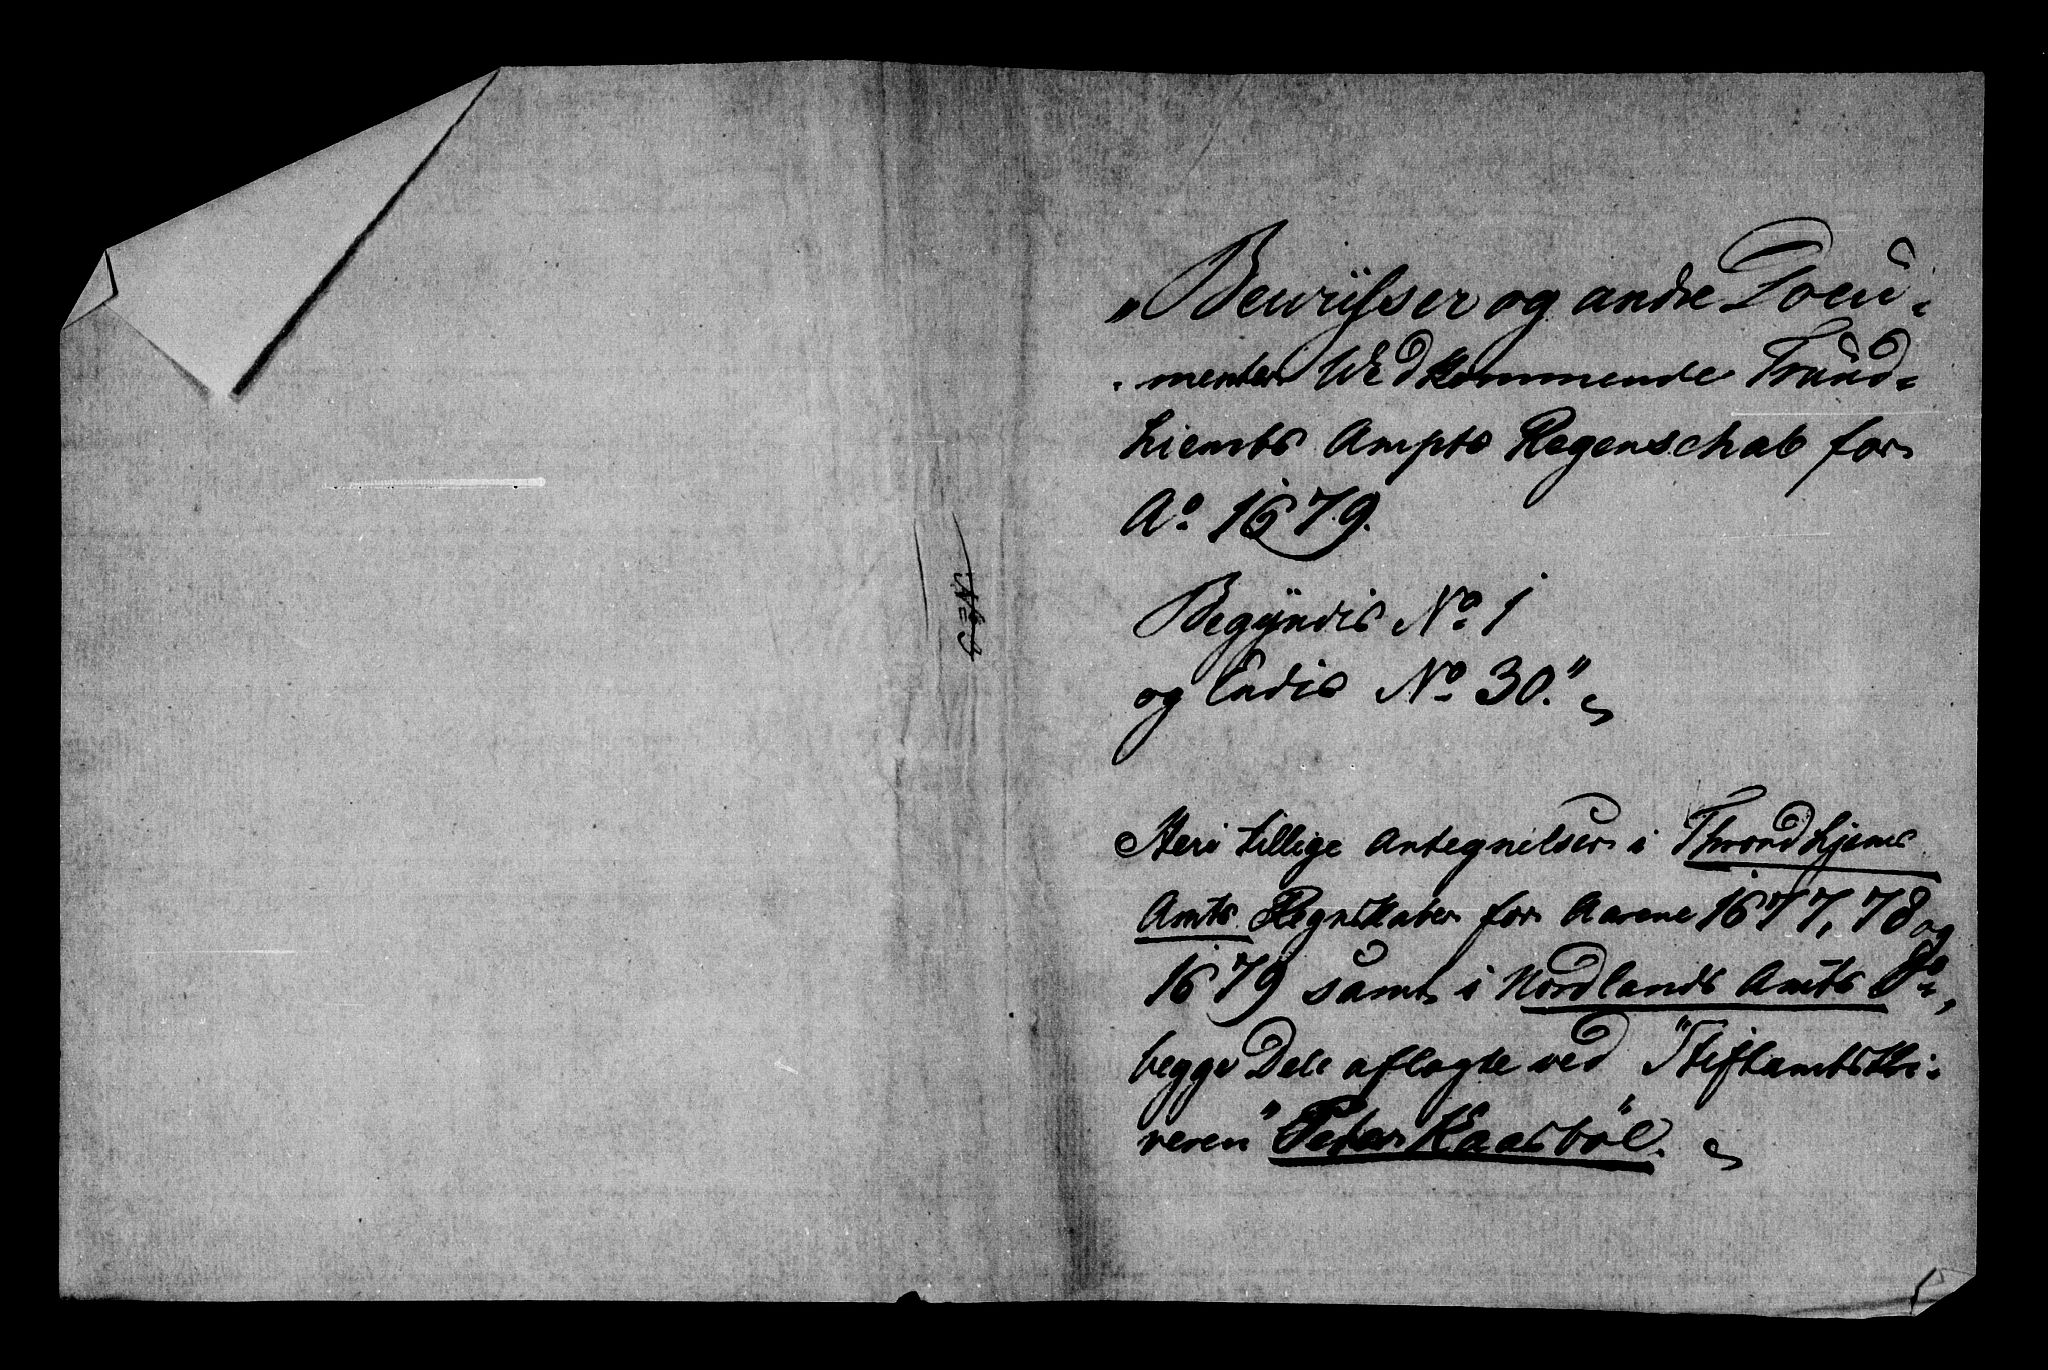 „Bewiiſser og andre Docu-
-menter Wedkommende Trund-
hiembs Ampts Regenschab for
Aº. 1679.
Begÿndis Nº. 1
og Endis Nº. 30."
Heri tillige Antegnelser i Throndhjems
Amts Regnskaber for Aarene 1677, 78 og
1679 samt i Nordlands Amts Dº.,
begge Dele aflagte ved "Stiftamtskri-
veren" "Peter Kaasböl".